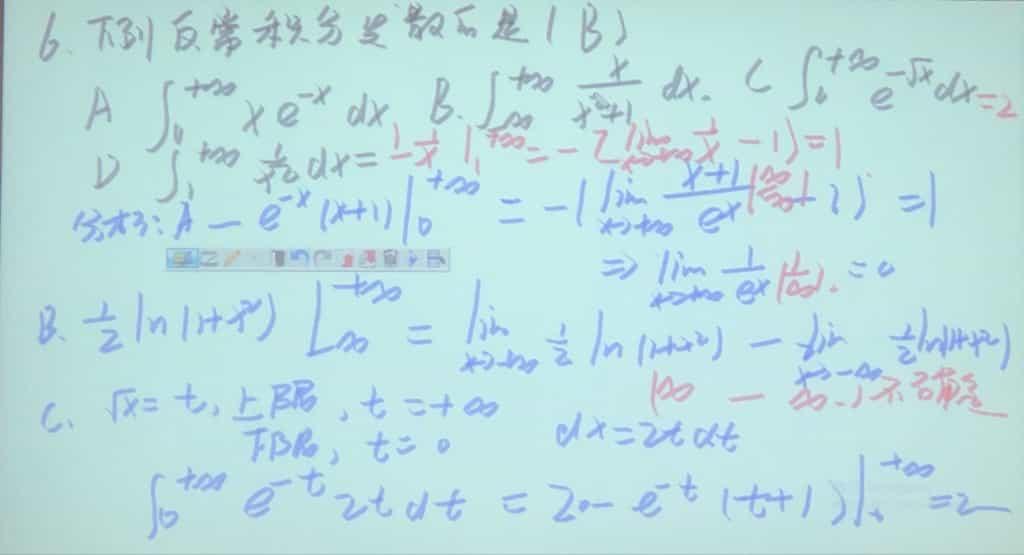 6. 下列反常积分发散的是(B)
A ∫₀^{+∞} x e^{-x} dx B. ∫_{-∞}^{+∞} x/(x²+1) dx. C ∫₀^{+∞} e^{-√x} dx = 2
D ∫₁^{+∞} 1/x² dx = -1/x |₁^{+∞} = -[lim_{x→+∞} 1/x - 1] = 1
分析: A - e^{-x}(x+1)|₀^{+∞} = -( lim_{x→+∞} (x+1)/e^x (∞/∞) - 1) = 1
⇒ lim_{x→+∞} 1/e^x (1/∞). = 0
B. ½ ln(1+x²) |_{-∞}^{+∞} = lim_{x→+∞} ½ ln(1+x²) - lim_{x→-∞} ½ ln(1+x²)
∞ - ∞,
C. √x = t, 上限, t = +∞
下限, t = 0 dx = 2t dt
∫₀^{+∞} e^{-t} 2t dt = 2·-e^{-t}(t+1)|₀^{+∞} = 2